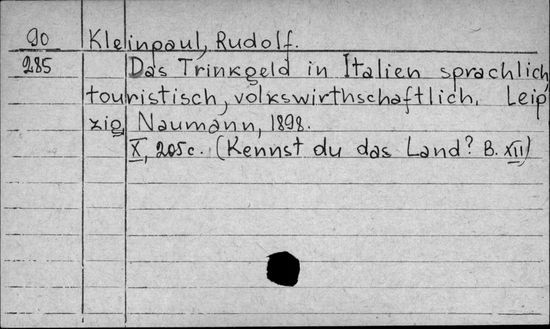 90 Kleinpaul, Rudolf.
285 Das Trinkgeld in Italien sprachlich,
touristisch, volkswirthschaftlich. Leip
zig Naumann, 1898.
X, 205c. (Kennst du das Land? B. XII)